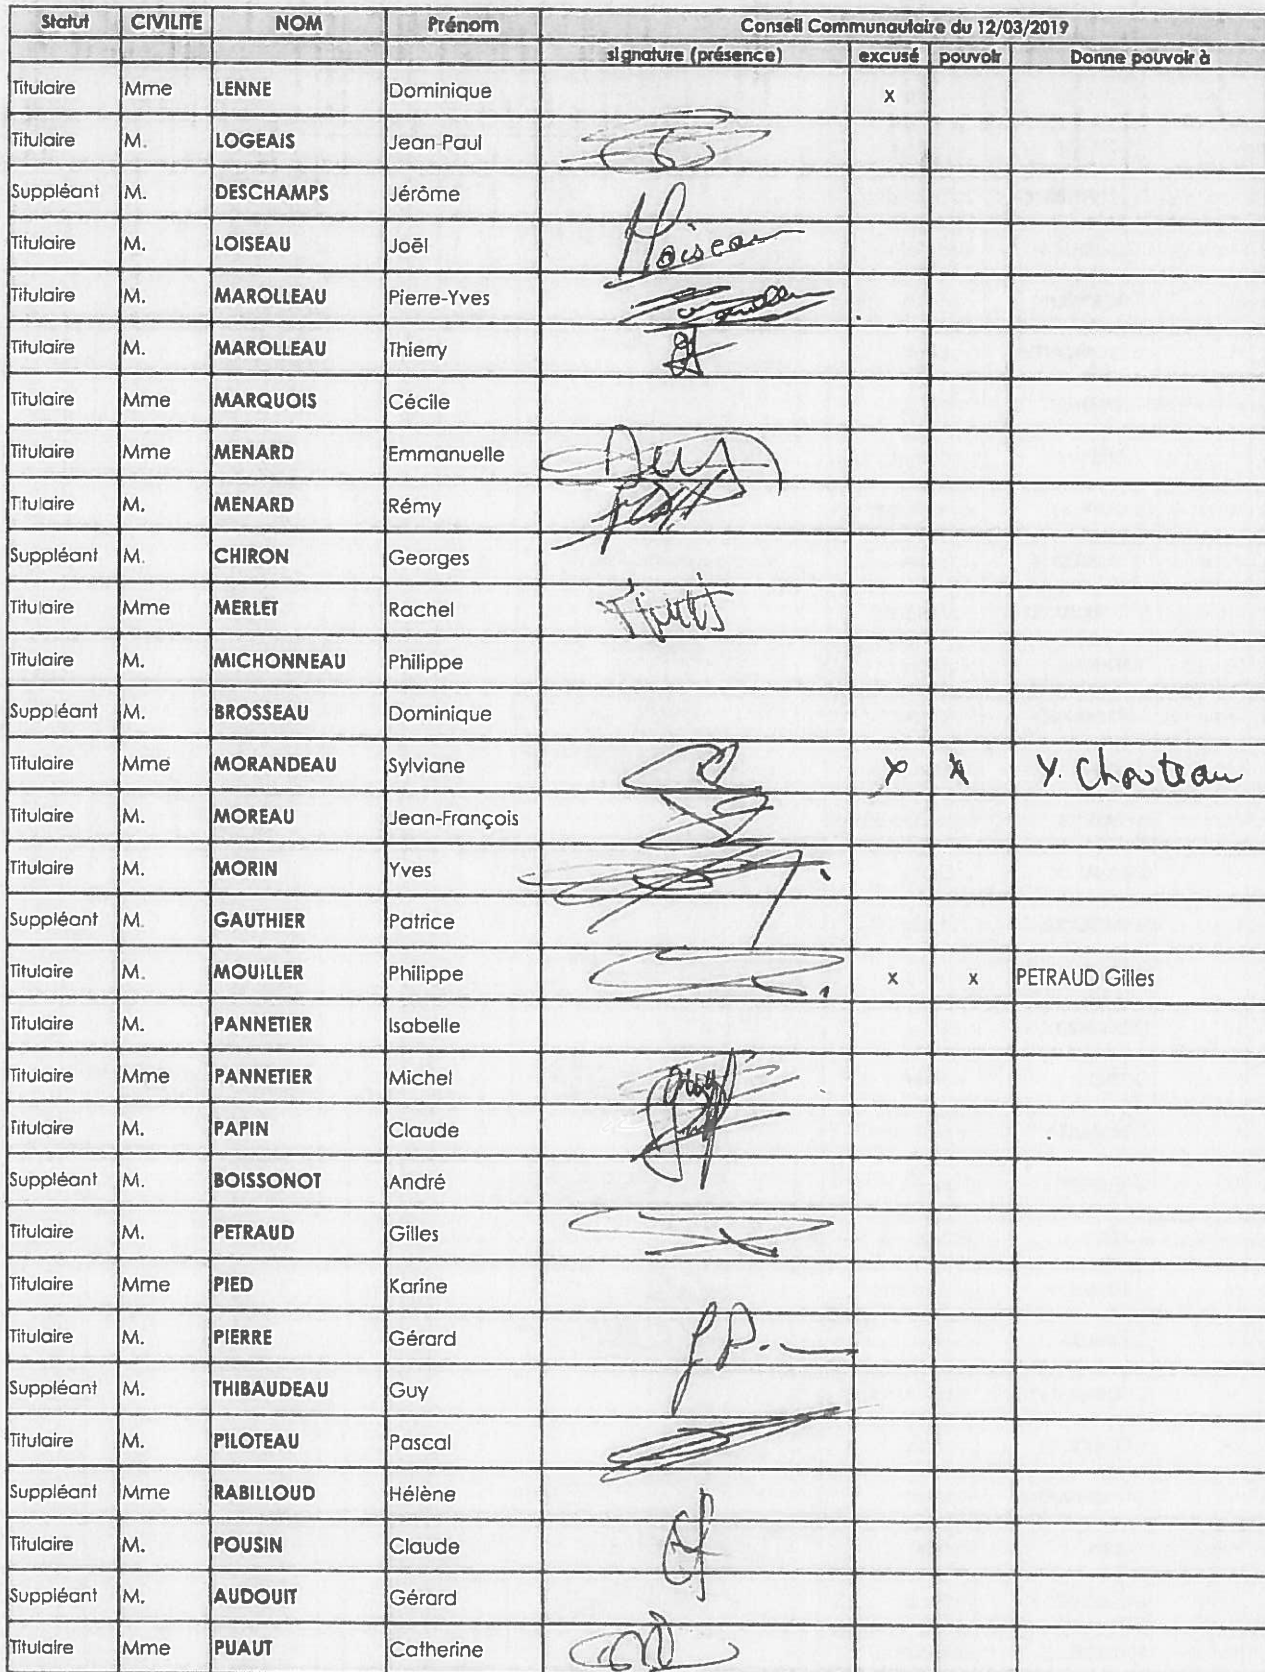 Statut CIVILITE NOM Prénom Conseil Communautaire du 12/03/2019
signature (présence) excusé pouvoir Donne pouvoir à
Titulaire Mme LENNE Dominique x
Titulaire M. LOGEAIS Jean-Paul
Suppléant M. DESCHAMPS Jérôme
Titulaire M. LOISEAU Joël
Titulaire M. MAROLLEAU Pierre-Yves
Titulaire M. MAROLLEAU Thierry
Titulaire Mme MARQUOIS Cécile
Titulaire Mme MENARD Emmanuelle
Titulaire M. MENARD Rémy
Suppléant M. CHIRON Georges
Titulaire Mme MERLET Rachel
Titulaire M. MICHONNEAU Philippe
Suppléant M. BROSSEAU Dominique
Titulaire Mme MORANDEAU Sylviane x x Y. Chouteau
Titulaire M. MOREAU Jean-François
Titulaire M. MORIN Yves
Suppléant M. GAUTHIER Patrice
Titulaire M. MOUILLER Philippe x x PETRAUD Gilles
Titulaire M. PANNETIER Isabelle
Titulaire Mme PANNETIER Michel
Titulaire M. PAPIN Claude
Suppléant M. BOISSONOT André
Titulaire M. PETRAUD Gilles
Titulaire Mme PIED Karine
Titulaire M. PIERRE Gérard
Suppléant M. THIBAUDEAU Guy
Titulaire M. PILOTEAU Pascal
Suppléant Mme RABILLOUD Hélène
Titulaire M. POUSIN Claude
Suppléant M. AUDOUIT Gérard
Titulaire Mme PUAUT Catherine